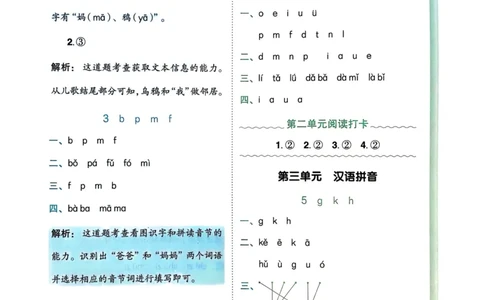 字有“妈(mā)、鸦(yā)”。
2.③
解析： 这道题考查获取文本信息的能力。
从儿歌结尾部分可知,乌鸦和“我”做邻居。
3 b p m f
一、b p m f
二、bǒ pá fǔ fó mì
三、f p m b
四、bà ba mā ma
解析： 这道题考查看图识字和拼读音节的
能力。识别出“爸爸”和“妈妈”两个词语
并选择相应的音节词进行填写即可。
一、o e i u ü
p m f d t n l
二、d m n p i ɑ u e
三、lí tǎ lú dǎ bǎ dà mǐ lǎ bǐ
四、i ɑ u ɑ
第二单元阅读打卡
1.② 2.② 3.② 4.②
第三单元 汉语拼音
5 g k h
一、g k h
二、kě ē kǎ
hǔ ù g u ó
三、